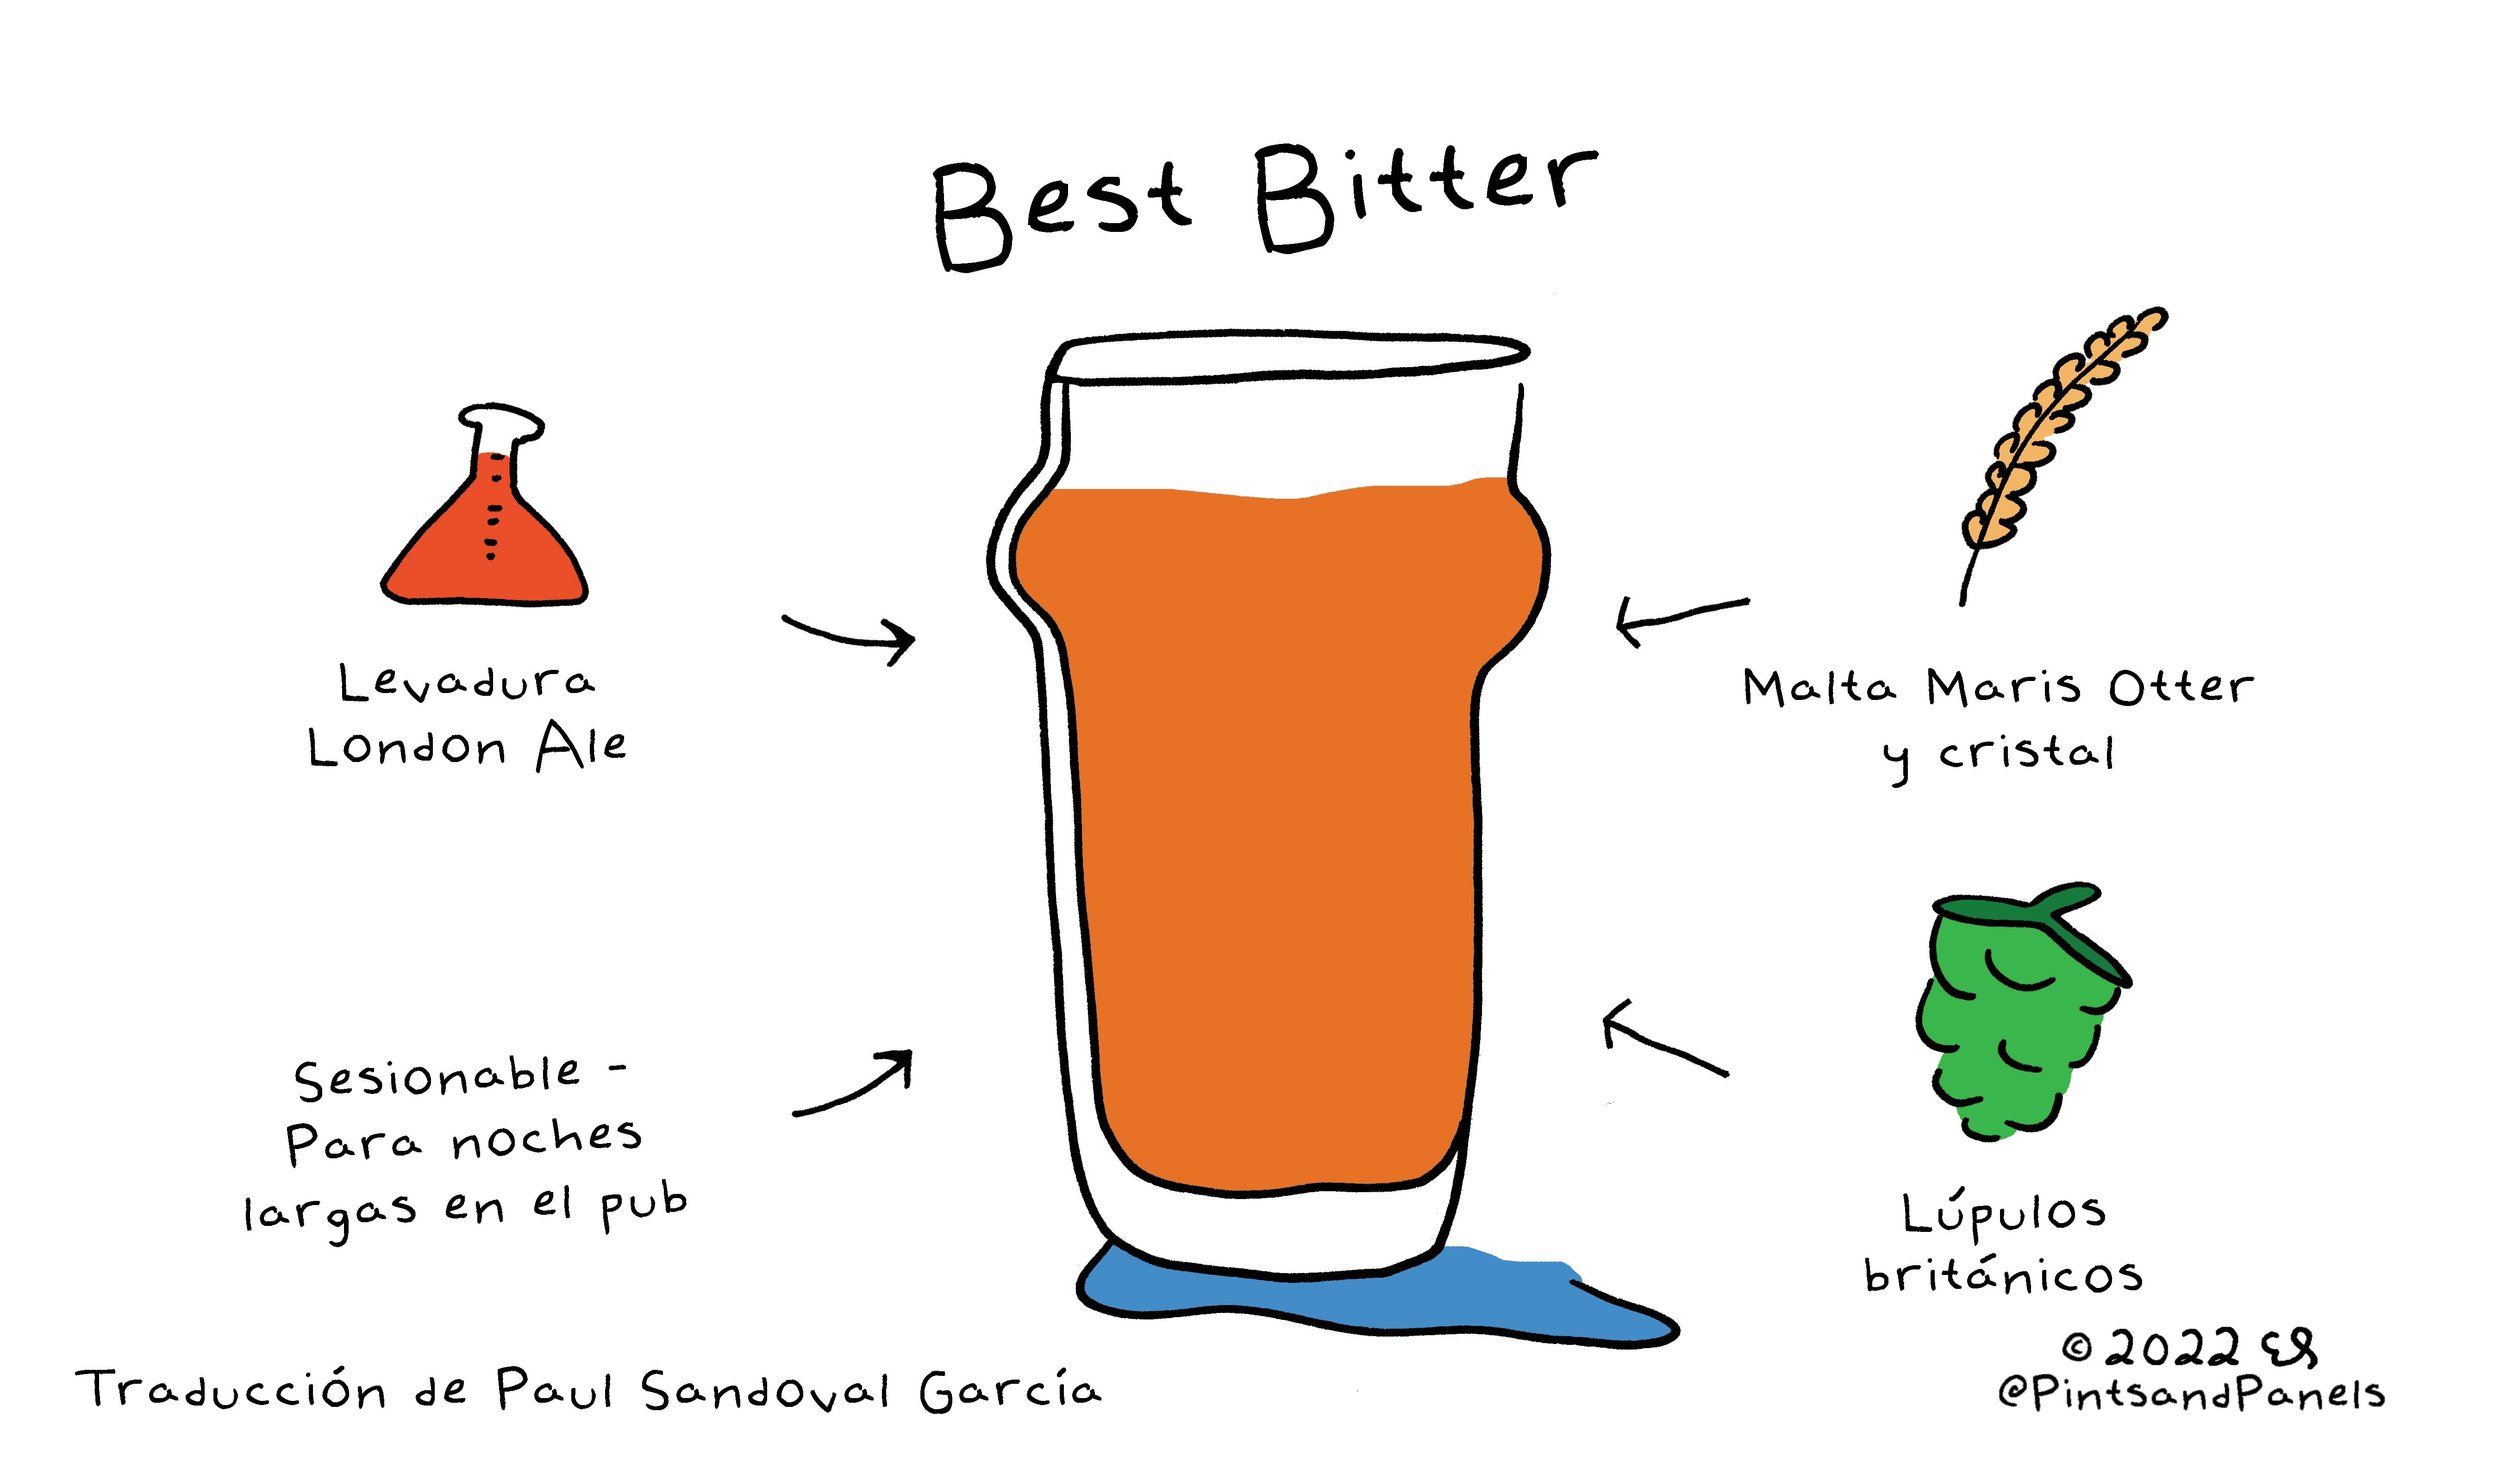 Best Bitter
Levadura
London Ale
Malta Maris Otter
y cristal
Sesionable -
Para noches
largas en el pub
Lúpulos
británicos
©2022
@PintsandPanels
Traducción de Paul Sandoval García